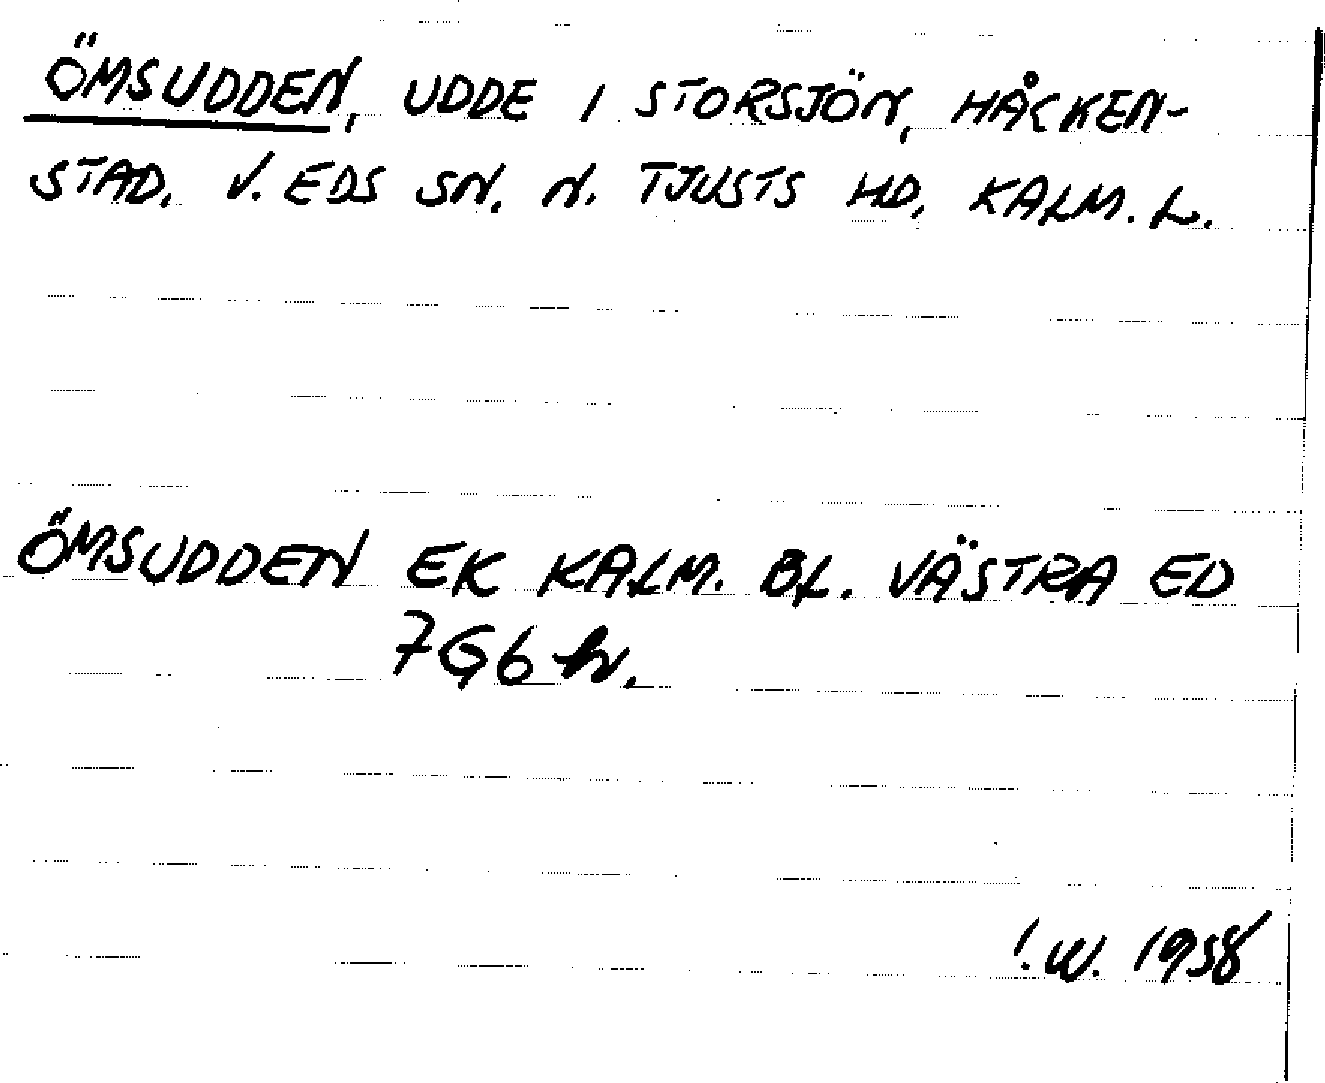 ÖMSUDDEN, UDDE I STORSJÖN, HÅCKEN-
STAD. V. EDS SN. N. TJUSTS HD. KALM. L.
ÖMSUDDEN EK KALM. BL. VÄSTRA ED
7G6h.
I.W. 1958